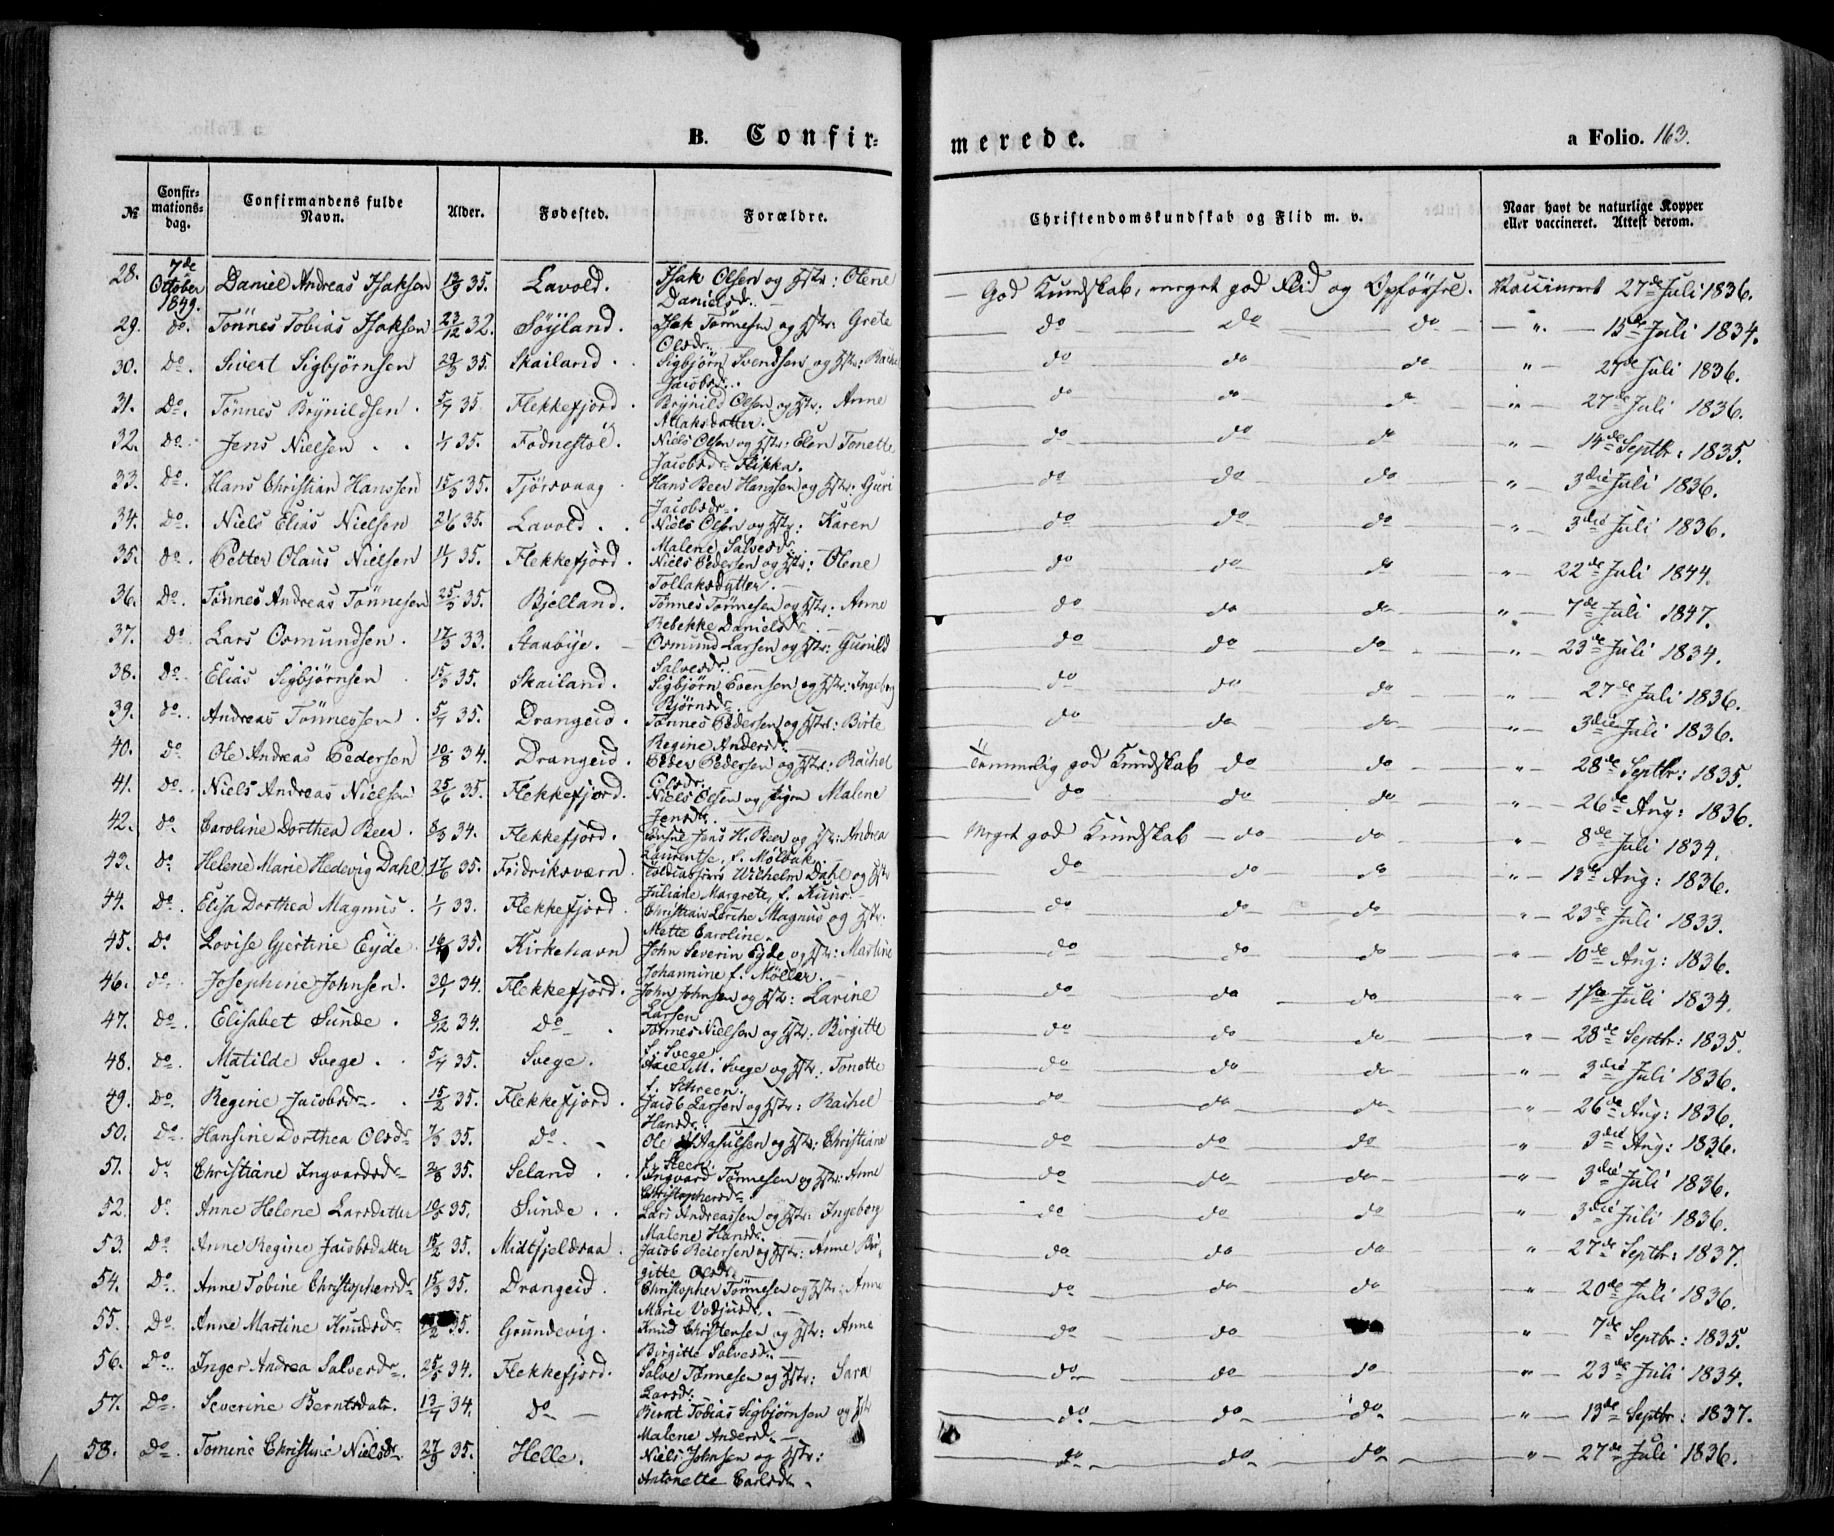 B. Confir-
merede.
a Folio. 163.
№
Confir-
mations-
dag.
Confirmandens fulde
Navn.
Alder.
Fødested.
Forældre.
Christendomskundskab og Flid m. v.
Naar havt de naturlige Kopper
eller vaccineret. Attest derom.
28. 7de October 1849. Daniel Andreas Isaksen 35. Lavold. Isak Olsen og Hstr: Olene Danielsdr. — God Kundskab, meget god Flid og Opførsel. Vaccineret 27de Juli 1836.
29. do. Tönnes Tobias Isaksen 23/12 32. Söyland. Isak Tönnesen og Hstr: Grete Olsdr. do do do — „ — 15de Juli 1834.
30. Do. Sivert Sigbjørnsen 35. Skailand. Sigbjørn Svendsen og Hstr: Rachel Jacobsdr. do do do „ — 27de Juli 1836.
31. Do. Tønnes Brynildsen. 35. Flekkefjord. Brynild Olsen og Hstr: Anne Atlaksdatter. do do do „ — 27de Juli 1836.
32. Do. Jens Nielsen 35. Fodnestöl. Niels Olsen og Hstr: Elen Tonette Jacobsdr. Flikka. do do do „ — 14de Septbr: 1835.
33. Do. Hans Christian Hanssen 35. Tjörsvaag. Hans Beer Hanssen og Hstr: Guri Jacobsdr. do do do „ — 3die Juli 1836.
34. Do. Niels Elias Nielsen 35. Lavold. Niels Olsen og Hstr: Karen Malene Salvesdr. do do do „ — 3die Juli 1836.
35. do. Petter Olaus Nielsen 35. Flekkefjord. Niels Pedersen og Hstr: Olene Tollaksdatter. do do do „ — 22de Juli 1844.
36. Do. Tønnes Andreas Tönnesen 35. Bjelland. Tönnes Tönnesen og Hstr: Anne Rebekke Danielsdr. do do do „ — 7de Juli 1847.
37. Do Lars Osmundsen. 33. Staabye. Osmund Larsen og Hstr: Gunild Salvesdr. do do do „ — 23de Juli 1834.
38. Do. Elias Sigbjørnsen 35. Skailand. Sigbjørn Evensen og Hstr: Ingeborg Bjørnsdr. do do do „ — 27de Juli 1836.
39. do. Andreas Tönnessen 35. Drangeid. Tönnes Pedersen og Hstr: Birte Regine Andersdr. do do do „ — 3die Juli 1836.
40. do Ole Andreas Pedersen 10/8 34. Drangeid. Peder Pedersen og Hstr: Rachel Olsdr. Temmelig god Kundskab do do „ — 28de Septbr: 1835.
41. do. Niels Andreas Nielsen 25/6 35. Flekkefjord. Niels Olsen og Pigen Malene Jensdr. do do do „ — 26de Aug: 1836.
42. do Caroline Dorthea Beer. 34. Flekkefjord. Jens H. Beer og Hstr: Andrea Laurentse, f. Mölbak. Meget god Kundskab do do „ 8de Juli 1834.
43. do Helene Marie Hedevig Dahl 35. Fridriksværn. Wilhelm Dahl og Hstr Juliane Margrete, f. do do do „ — 13de Aug: 1836.
44. do. Elisa Dorthea Magnus. 1/1 33. Flekkefjord. Christian Lerche Magnus og Hstr. Mette Caroline. do do do „ — 23de Juli 1833.
45. Do. Lovise Gjertine Eyde 35. Kirkehavn John Severin Eyde og Hstr: Martine Johannine f. Møller. do do do „ — 10de Aug: 1836.
46. do. Josephine Johnsen. 34. Flekkefjord. John Johnsen og Hstr: Larine Larsen do do do „ — Juli 1834.
47. do. Elisabet Sunde. 8/12 34. Do Tønnes Nielsen og Hstr: Birgitte f. Svege do do do „ — 28de Septbr: 1835.
48. do. Matilde Svege. 35. Svege. M. Svege og Hstr: Tonette f. Schreen. do do do „ — 3die Juli 1836.
49. Do. Regine Jacobsdr. 15/2 35. Flekkefjord. Jacob Larsen og Hstr: Rachel Hansdr. do do do „ — 26de Aug: 1836.
50. Do. Hansine Dorthea Olsdr 35. Do. Ole Aasulsen og Hstr: Christiane f. Steen. do do do „ 3die Aug: 1836.
51. do Christiane Ingvardsdr 35. Seland. Ingvard Tönnesen og Hstr: Anne Christophersdr. do do do „ — 3die Juli 1836.
52. do. Anne Helene Larsdatter 35. Sunde. Lars Andreassen og Hstr: Ingeborg Malene Hansdr. do do do „ 3die Juli 1836.
53. Do. Anne Regine Jacobsdatter 15/2 35. Midtfjeldsaa. Jacob Reiersen og Hstr: Anne Bir- gitte Olsdr. do do do „ — 27de Septbr: 1837.
54. Do. Anne Tobine Christophersdr 35. Drangeid. Christopher Tönnesen og Hstr: Anne Marie do do do „ — 20de Juli 1836.
55. Do. Anne Martine Knudsdr 35. Grundevig. Knud Christensen og Hstr: Anne Birgitte Salvesdr. do do „ — 7de Septbr: 1835.
56. Do. Inger Andrea Salvesdr. 34. Flekkefjord. Salve Tönnesen og Hstr: Sara Larsdr. do do do „ — 23de Juli 1834.
57. Do. Severine Berntsdatr. 34. Do Bernt Tobias Sigbjørnsen og Hstr Malene Andersdr. do do do „ — 13de Septbr: 1837.
58. Do. Tomine Christine Nielsdr. 35. Helle. Niels Johnsen og Hstr: Antonette Carlsdr. do do do „ — 27de Juli 1836.